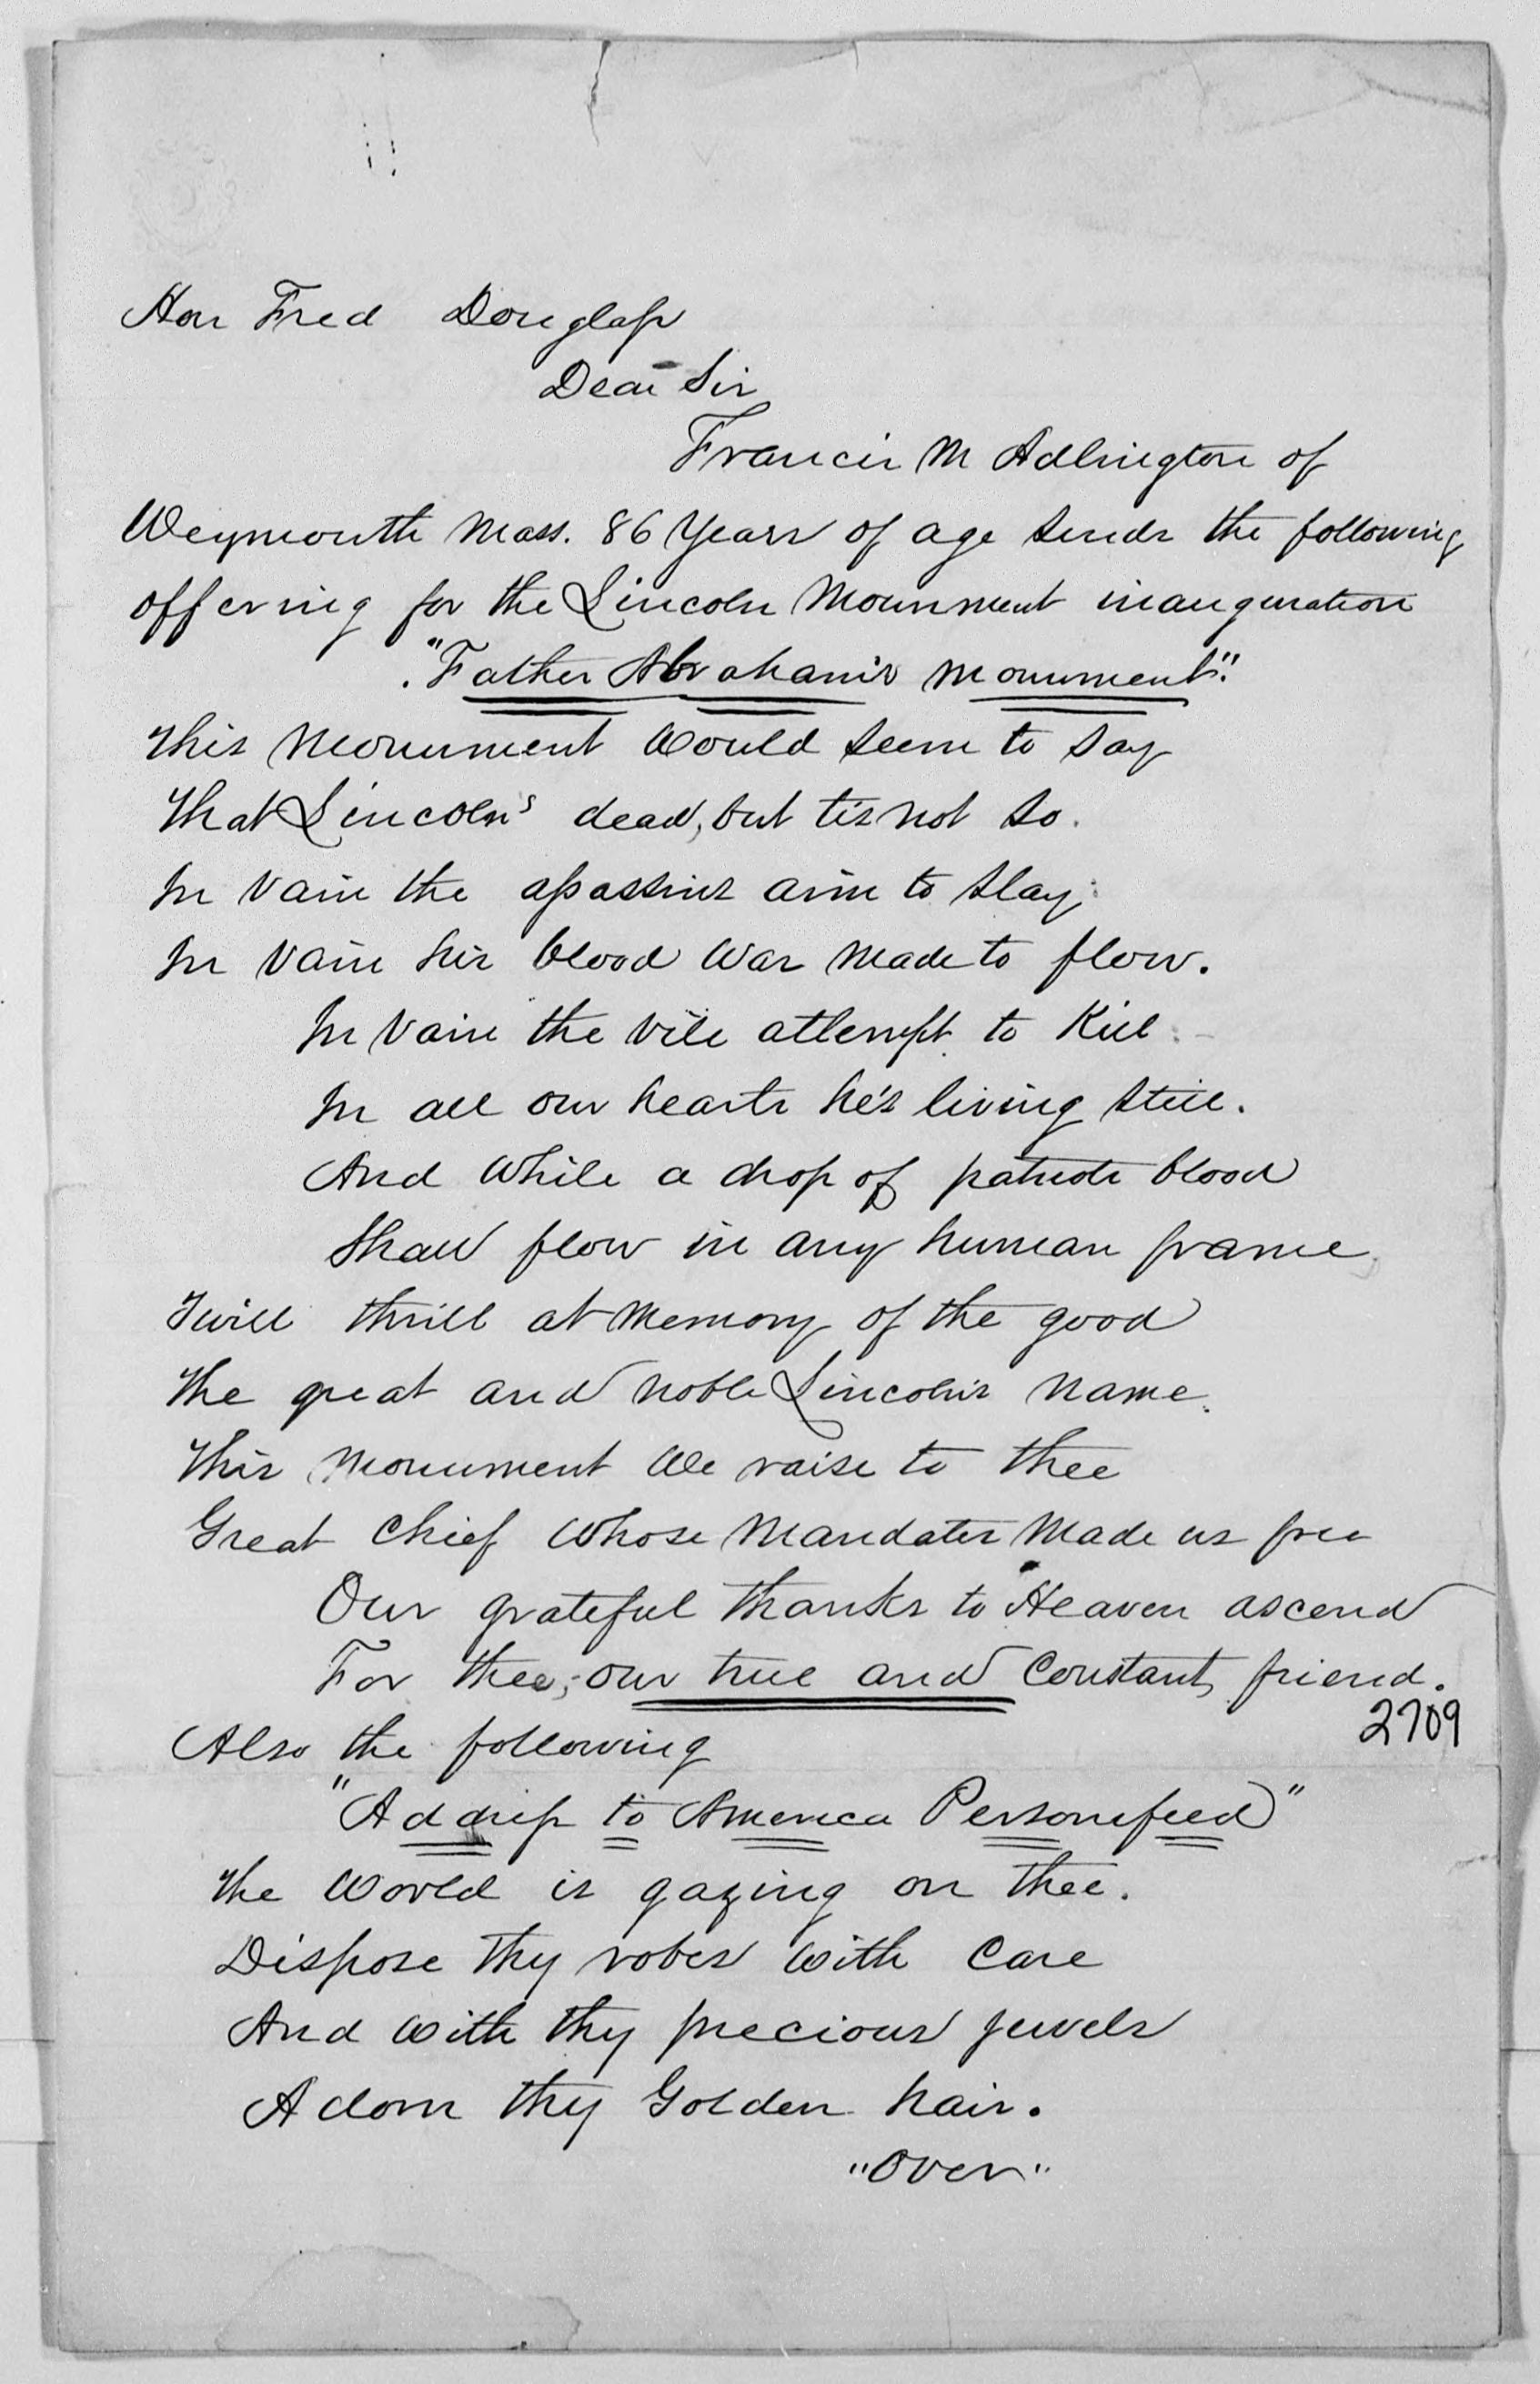 Hon Fred Douglass
Dear Sir
Francis M Adlington of
Weymouth Mass. 86 Years of age sends the following
offering for the Lincoln Monument inauguration
"Father Abraham's Monument".
This Monument Would seem to say
That Lincoln's dead, but tis not so.
In vain the assassins aim to slay;
In vain his blood was made to flow.
In vain the vile attempt to Kill:-
In all our hearts he's living still.
And While a drop of patriots blood
Shall flow in any human frame,
Twill thrill at memory of the good
The great and noble Lincoln's name.
This Monument We raise to thee
Great Chief Whose Mandates Made us free
Our grateful thanks to Heaven ascend
For thee;-our true and Constant friend.
2709
Also the following
"Address to America Personefied"
The World is gazing on thee.
Dispose thy robes with care
And with thy precious jewels
Adorn thy Golden hair.
"Over"